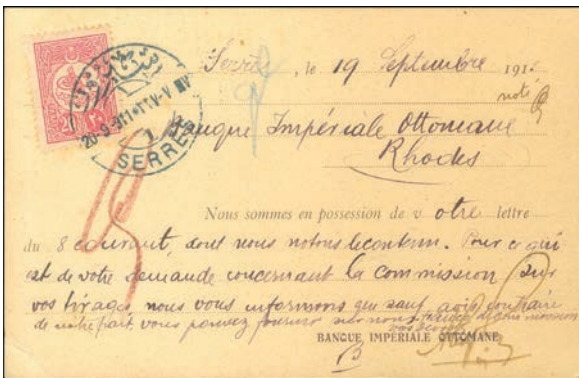 Serres, le 19 Septembre 191
noté
Banque Impériale Ottomane
Rhodes
20-9-911
SERRES
20
Nous sommes en possession de votre lettre
du 8 courant, dont nous notons le contenu. Pour ce qui
est de votre demande concernant la commission sur
vos tirages nous vous informons que sauf avis contraire
de notre part vous pouvez fournir sur nous
BANQUE IMPÉRIALE OTTOMANE